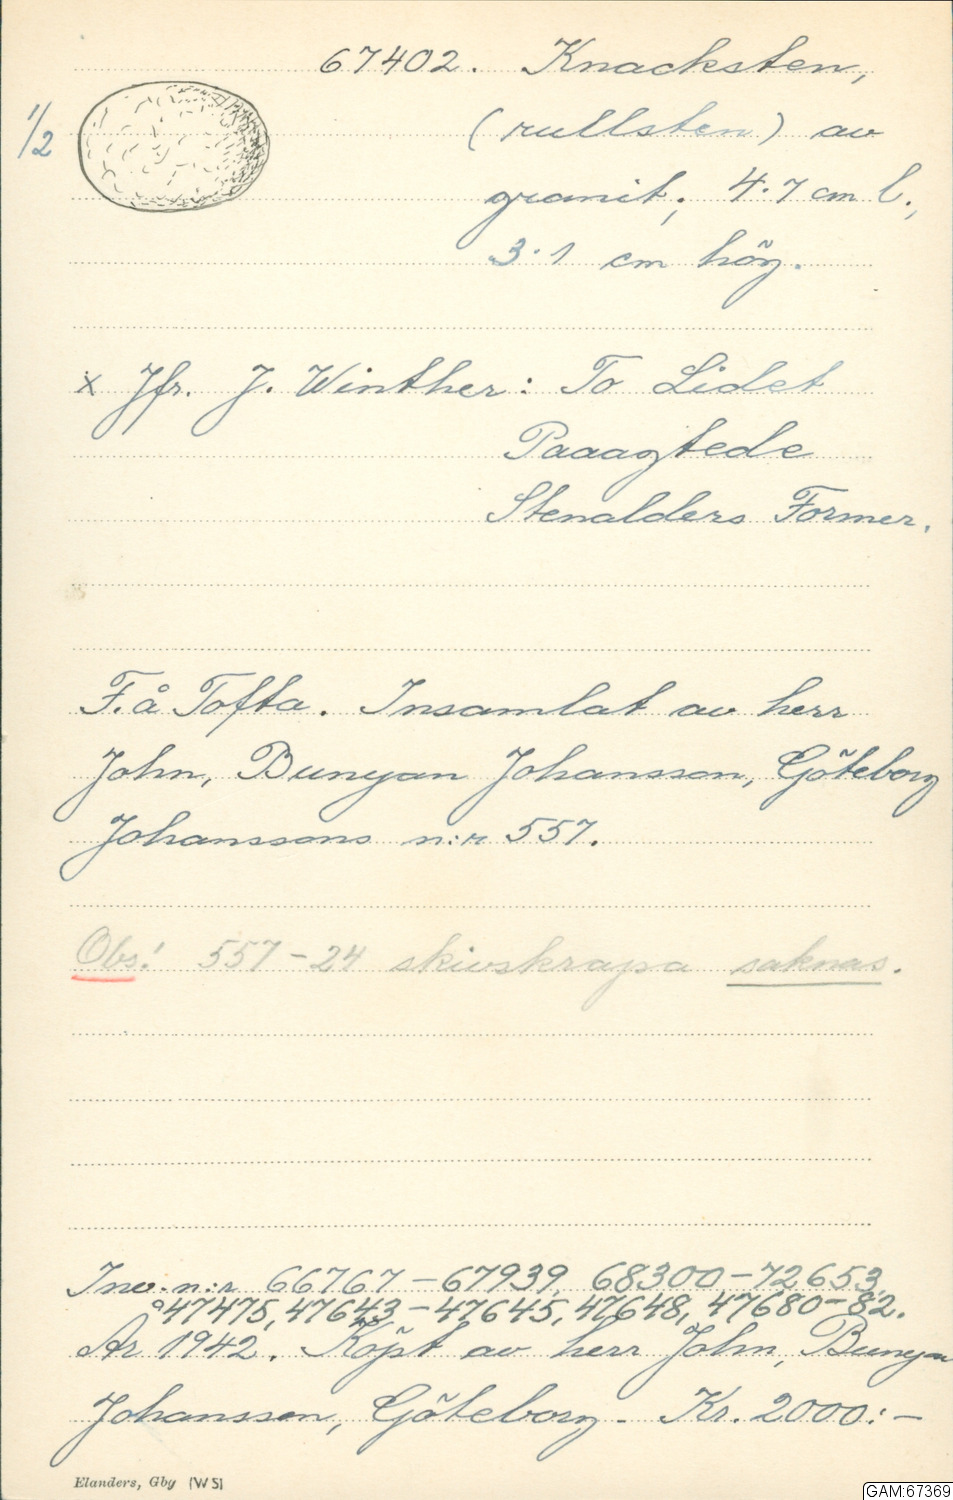 67402. Knacksten,
1/2
(rullsten) av
granit; 4.7 cm l.,
3.1 cm hög.
x Jfr. J. Winther: To Lidet
Paaagtede
Stenalders Former.
F. å Tofta. Insamlat av herr
John, Bunyan Johansson, Göteborg
Johanssons n:r 557.
Obs! 557-24 skivskrapa saknas.
Inv. n:r 66767-67939, 68300-72653,
47475, 47643-47645, 47648, 47680-82.
År 1942. Köpt av herr John, Bunyan
Johansson, Göteborg. Kr. 2000:-
Elanders, Gby (W 5)
GAM:67369